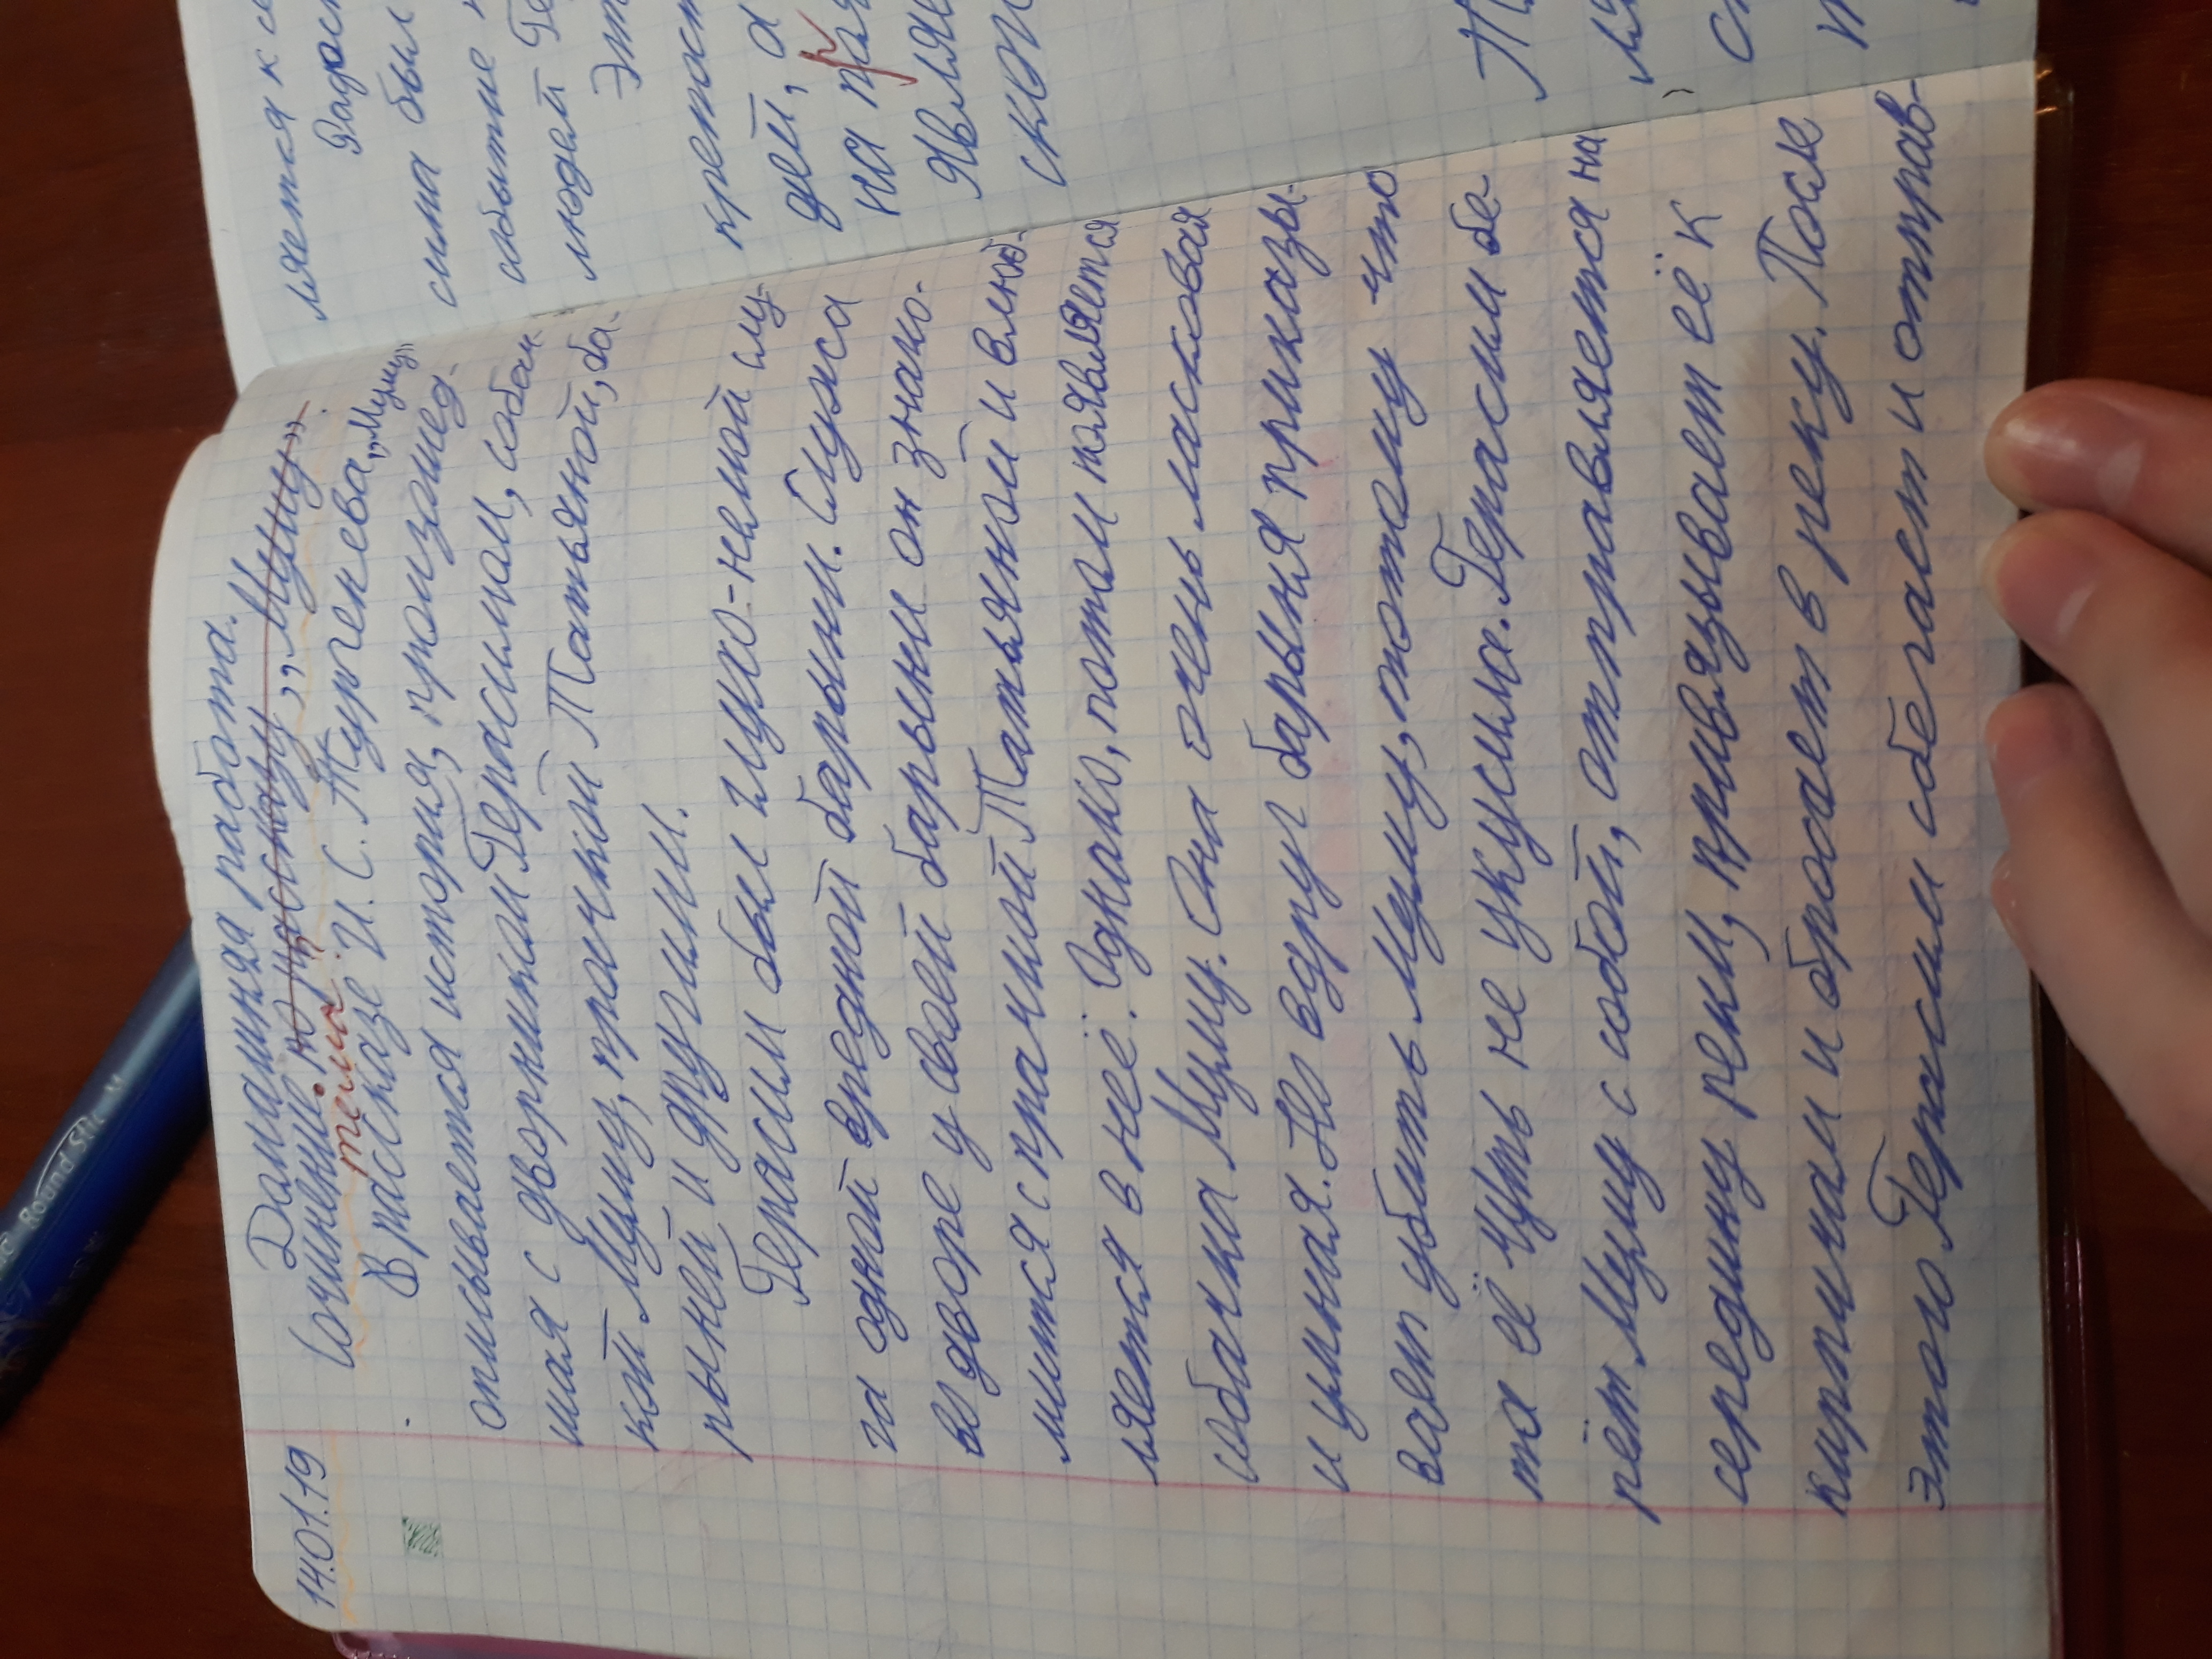 14.01.19
Домашняя работа.
Сочинение. по рассказу „Муму".
тема
В рассказе И. С. Тургенева „Муму"
описывается история, произошед-
шая с дворником Герасимом, собач
кой Муму, прачкой Татьяной, ба-
рыней и другими.
Герасим был глухо-немой слу-
га одной вредной барыни. Служа
во дворе у своей барыни он знако-
мится с прачкой Татьяной и влюб-
ляется в неё. Однако, потом появляется
собачка Муму. Она очень ласковая
и умная. Но вдруг барыня приказы-
вает убить Муму, потому что
та её чуть не укусила. Герасим бе-
рёт Муму с собой, отправляется на
середину реки, привязывает её к
кирпичам и бросает в реку. После
этого Герасим сбегает и отправ-
ляется к с
Радос
сима был
событие
людей Ге
Эт
крепост
дей, а
на
явля
скол